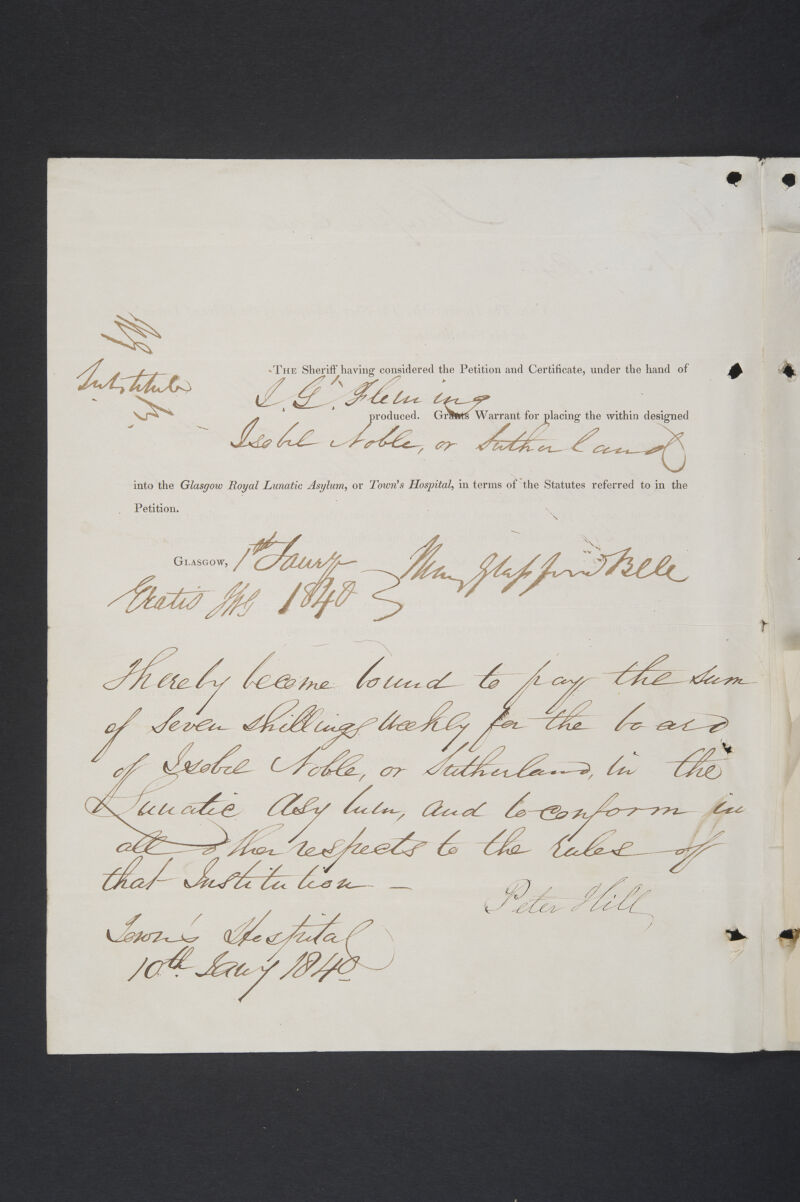 Substitute
THE Sheriff having considered the Petition and Certificate, under the hand of
J. G. Fleming
produced. Grants Warrant for placing the within designed
Isobel Noble, or Sutherland
into the Glasgow Royal Lunatic Asylum, or Town's Hospital, in terms of the Statutes referred to in the
Petition.
GLASGOW, Jany
Gratis 1840
I hereby become bound to pay the sum
of Seven Shillings Weekly for the board
of Isobel Noble, or Sutherland, in the
Lunatic Asylum, and to conform in
all other respects to the rules of
that Institution –
Peter Hill
Town's Hospital
10th Jany 1840